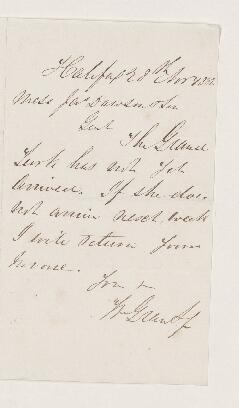 Halifax 8th Nov
Mess Jas Dawson & Son
Gent
The Grand
Turk has not yet
arrived. If she does
not arrive next week
I will return your
Yours
Wm Grant